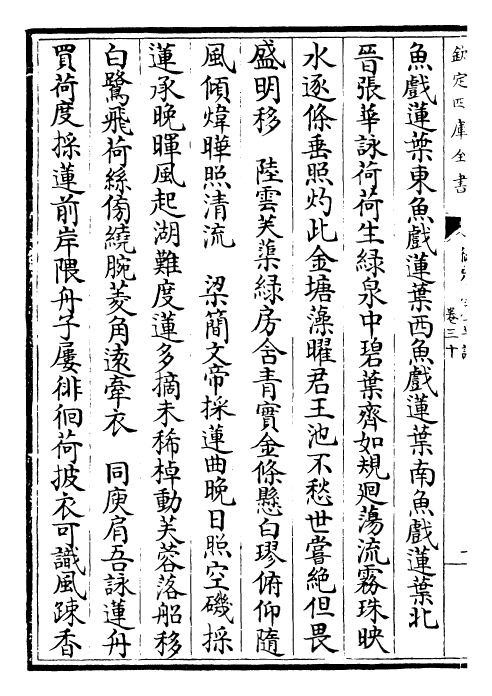 欽定四庫全書
卷三十
魚戲蓮葉東魚戲蓮葉西魚戲蓮葉南魚戲蓮葉北
晉張華詠荷荷生綠泉中碧葉齊如規廻蕩流霧珠映
水逐條垂照灼此金塘藻曜君王池不愁世嘗絶但畏
盛明移　陸雲芙蕖緑房含青實金條懸白璆俯仰隨
風傾煒曄照清流　梁簡文帝採蓮曲晚日照空磯採
蓮承晚暉風起湖難度蓮多摘未稀棹動芙蓉落船移
白鷺飛荷絲傍繞腕菱角遠牽衣　同庾肩吾詠蓮舟
買荷度採蓮前岸隈舟子屢徘徊荷披衣可識風疎香